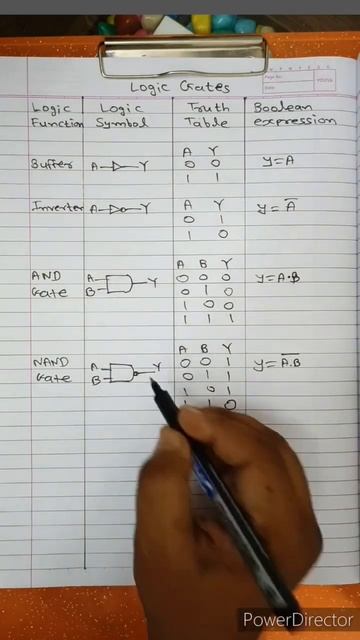 Page No.:
Date
YOUVA
Logic Gates
Logic Function
Logic Symbol
Truth Table
Boolean expression
Buffer
A Y
A Y
0 0
1 1
y=A
Inverter
A Y
A Y
0 1
1 0
y = A̅
AND Gate
A
B
Y
A B Y
0 0 0
0 1 0
1 0 0
1 1 1
y=A·B
NAND Gate
A
B
Y
A B Y
0 0 1
0 1 1
1 0 1
1 1 0
y= A̅.̅B̅
PowerDirector